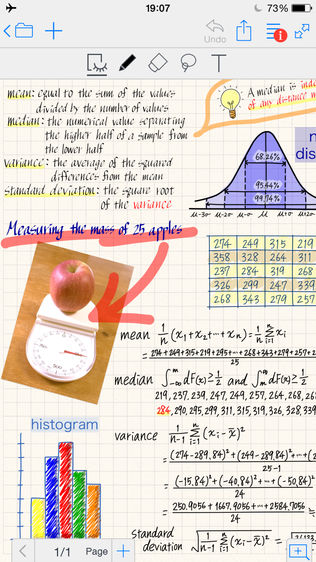 19:07
73%
Undo
mean: equal to the sum of the values
divided by the number of values
median: the numerical value separating
the higher half of a sample from
the lower half
variance: the average of the squared
differences from the mean
standard deviation: the square root
of the variance
A median is
of any distance
68.26%
95.44%
99.74%
μ-3σ μ-2σ μ-σ μ μ+σ μ+2σ
dis
Measuring the mass of 25 apples
274 249 315 219
358 328 264 311
237 284 319 268
326 299 247 339
268 343 279 257
mean 1/n (x₁+x₂+···+xₙ) = 1/n Σ xᵢ
= 274+249+315+219+295+···+268+343+279+257+2
25
median ∫ dF(x) ≥ 1/2 and ∫ dF(x) ≥ 1/2
219, 237, 239, 247, 249, 257, 264, 268, 26
284, 290, 295, 299, 311, 315, 319, 326, 328, 339
histogram
variance 1/n-1 Σ (xᵢ-x̄)²
= (274-289.84)²+(249-289.84)²+···+(
25-1
= (-15.84)²+(-40.84)²+···+(-50.84)²
24
= 250.9056+1667.9056+···+2584.7056
24
standard
deviation √1/n-1 Σ (xᵢ-x̄)² =
1/1 Page